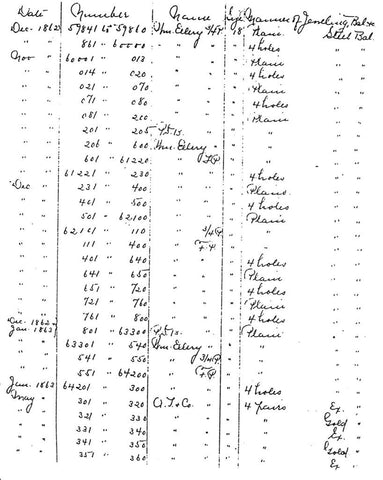 Date Number Name Size Manner of Jeweling, Bal. &c
Dec. 1862 59841 to 59860 Wm. Ellery 3/4 P. 18 Plain Steel Bal.
" " 861 " 60000 " " " 4 holes "
Nov " 60001 " 013 " " " Plain "
" " 014 " 020 " " " 4 holes "
" " 021 " 070 " " " Plain "
" " 071 " 080 " " " 4 holes "
" " 081 " 200 " " " Plain "
" " 201 " 205 P.S.B. " " "
" " 206 " 600 Wm. Ellery " " "
" " 601 " 61220 " F.P. " " "
" " 61221 " 230 " " " 4 holes "
" Dec 231 " 400 " " " Plain "
" " 401 " 500 " " " 4 holes "
" " 501 " 62100 " " " Plain "
" " 62101 " 110 " 3/4 P. " " "
" " 111 " 400 " F.P. " " "
" " 401 " 640 " " " 4 holes "
" " 641 " 650 " " " Plain "
" " 651 " 720 " " " 4 holes "
" " 721 " 760 " " " Plain "
" " 761 " 800 " " " 4 holes "
Dec. 1862 &
Jan. 1863 801 " 63300 P.S.B. " Plain "
" " 63301 " 540 Wm. Ellery " " " "
" " 541 " 550 " 3/4 P. " " "
" " 551 " 64200 " F.P. " " "
June 1863 64201 " 300 " " " 4 holes "
" May " 301 " 320 A.T. & Co. " 4 pairs Ex.
" " 321 " 330 " " " Gold "
" " 331 " 340 " " " Ex. "
" " 341 " 350 " " " Gold "
" " 351 " 360 " " " Ex. "